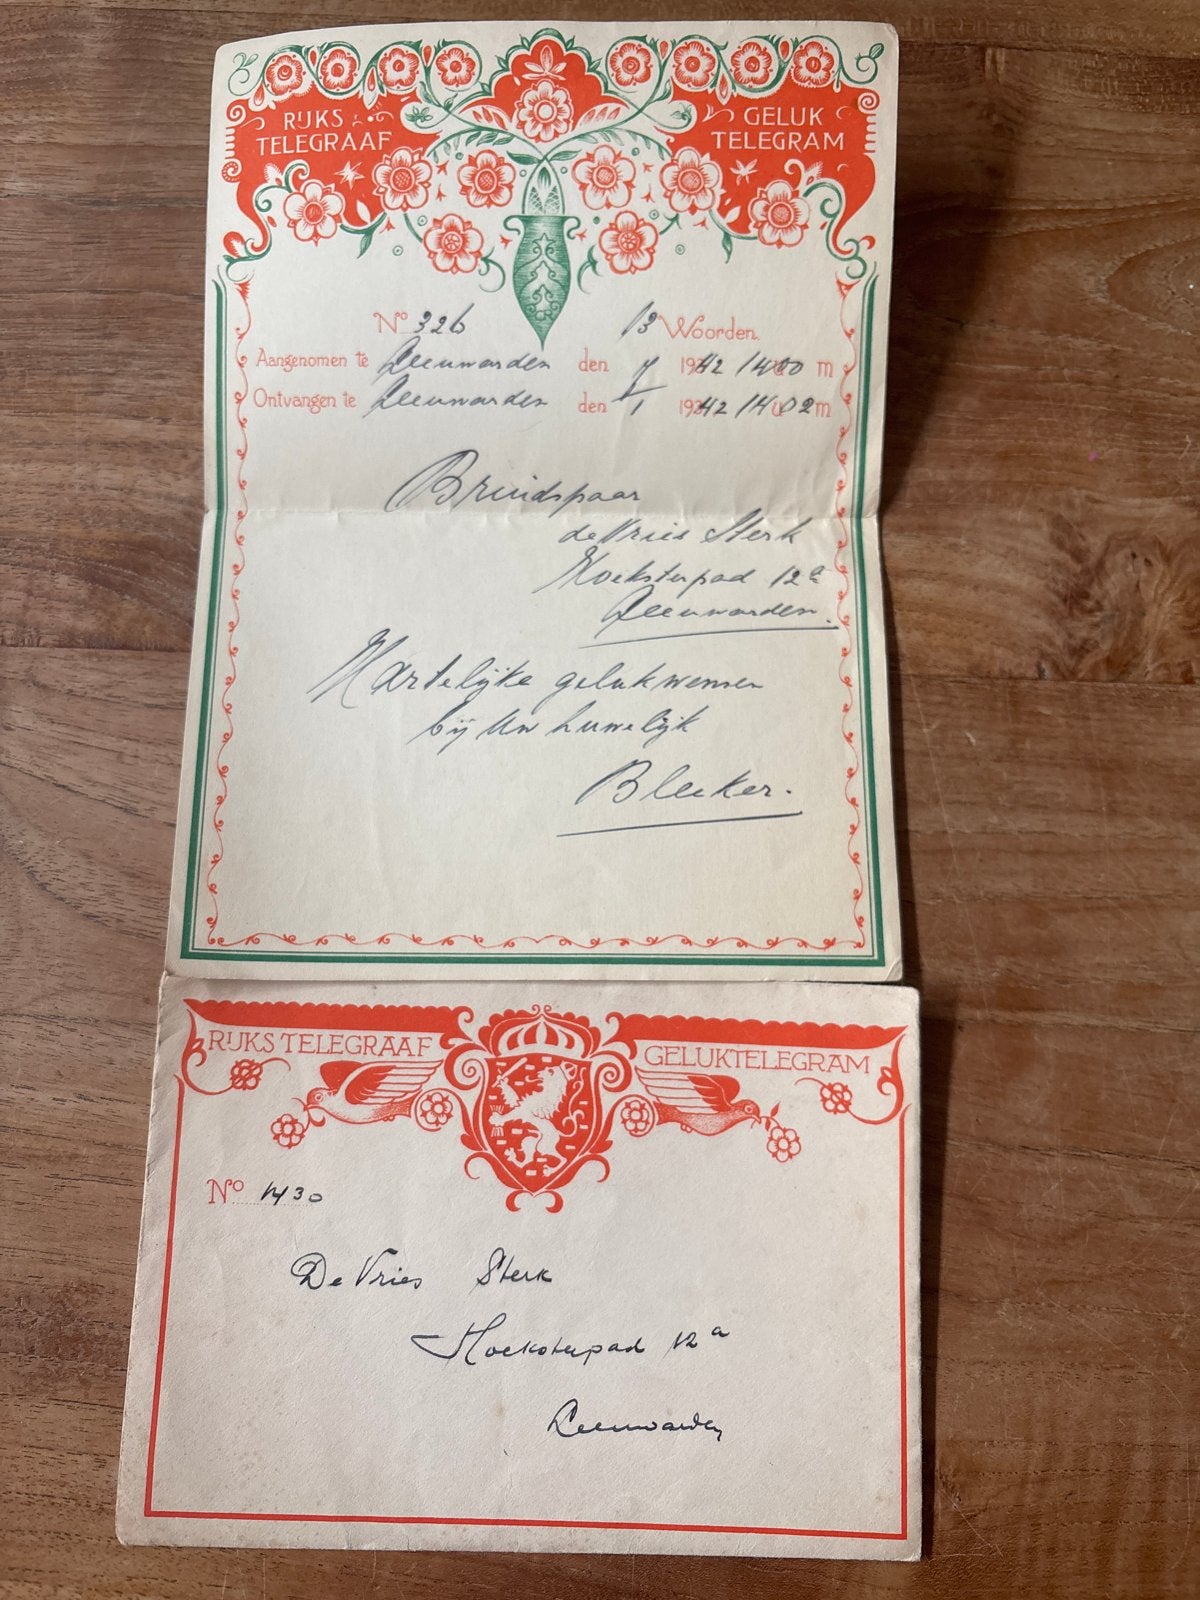 RIJKS
TELEGRAAF
GELUK
TELEGRAM
No 326 13 Woorden.
Aangenomen te Leeuwarden den 7 1942 14 u 00 m
Ontvangen te Leeuwarden den 1 1942 14 u 02 m
Bruidspaar
de Vries Sterk
Hoeksterpad 12a
Leeuwarden.
Hartelijke gelukwensen
bij Uw huwelijk
Bleeker.
RIJKS TELEGRAAF
GELUKTELEGRAM
No 1430
De Vries Sterk
Hoeksterpad 12a
Leeuwarden